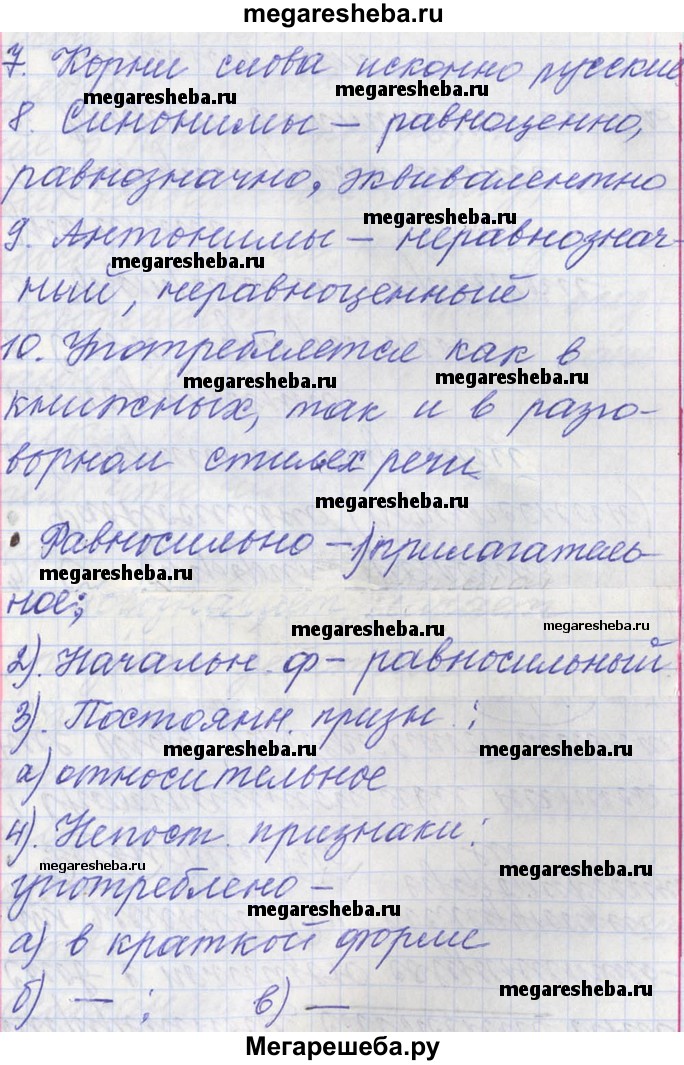 megaresheba.ru
7. Корни слова исконно русские
megaresheba.ru megaresheba.ru
8. Синонимы – равноценно,
равнозначно, эквивалентно
megaresheba.ru
9. Антонимы – неравнознач-
megaresheba.ru
ный, неравноценный
10. Употребляется как в
megaresheba.ru megaresheba.ru
книжных, так и в разго-
ворном стилех речи
megaresheba.ru
• Равносильно – 1) прилагатель-
megaresheba.ru
ное;
megaresheba.ru megaresheba.ru
2). Начальн. ф – равносильный
3). Постоянн. призн :
megaresheba.ru megaresheba.ru
а) относительное
4). Непост. признаки:
megaresheba.ru megaresheba.ru
употреблено –
megaresheba.ru
а) в краткой форме
б) — ; в) —
megaresheba.ru
Мегарешеба.ру